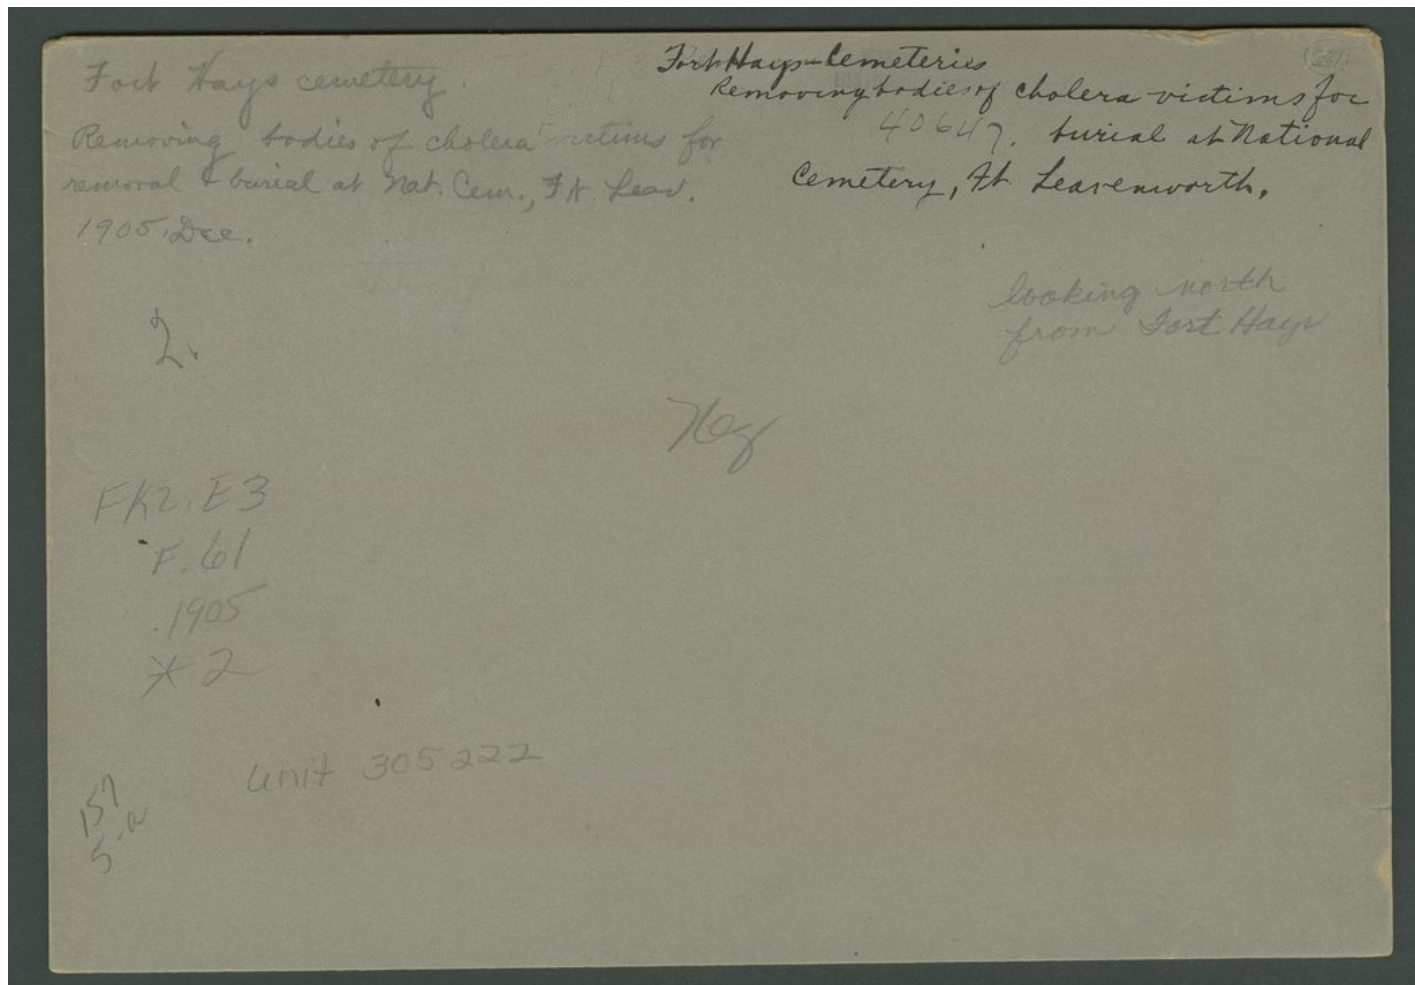 Fort Hays cemetery.
Removing bodies of cholera victims for
removal & burial at Nat. Cem., Ft. Leav.
1905, Dec.
Fort Hays-Cemeteries
Removing bodies of cholera victims for
40647. burial at National
Cemetery, Ft. Leavenworth.
looking north
from Fort Hays
2.
Neg
FK2.E3
F.61
.1905
*2
unit 305222